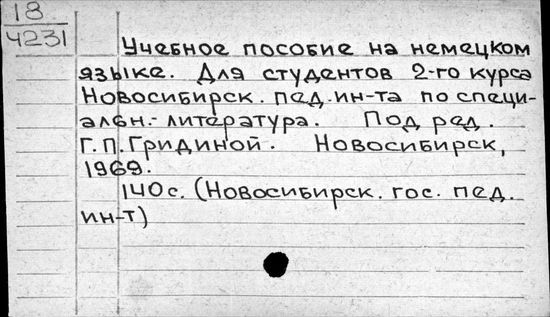 18
4231
Учебное пособие на немецком
языке. Для студентов 2-го курса
Новосибирск. пед. ин-та по специ-
альн.- литература. Под ред.
Г. П. Гридиной. Новосибирск,
1969.
140 с. (Новосибирск. гос. пед.
ин-т)